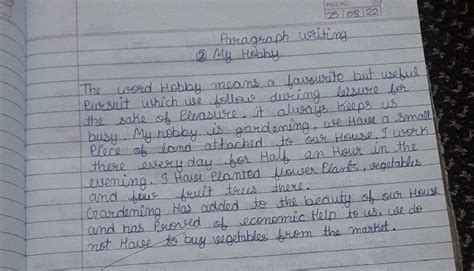 PAGE NO.
25 08 22
Paragraph writing
② My Hobby
The word Hobby means a favourite but useful
Pursuit which we follow during leisure for
the sake of Pleasure. it always Keeps us
busy. My hobby is gardening, we Have a small
Piece of land attached to our House. I work
there every day for Half an Hour in the
evening. I Have Planted flower Plants, vegetables
and few fruit trees there.
Gardening Has added to the beauty of our House
and has Proved of economic Help to us. we do
not Have to buy vegetables from the market.